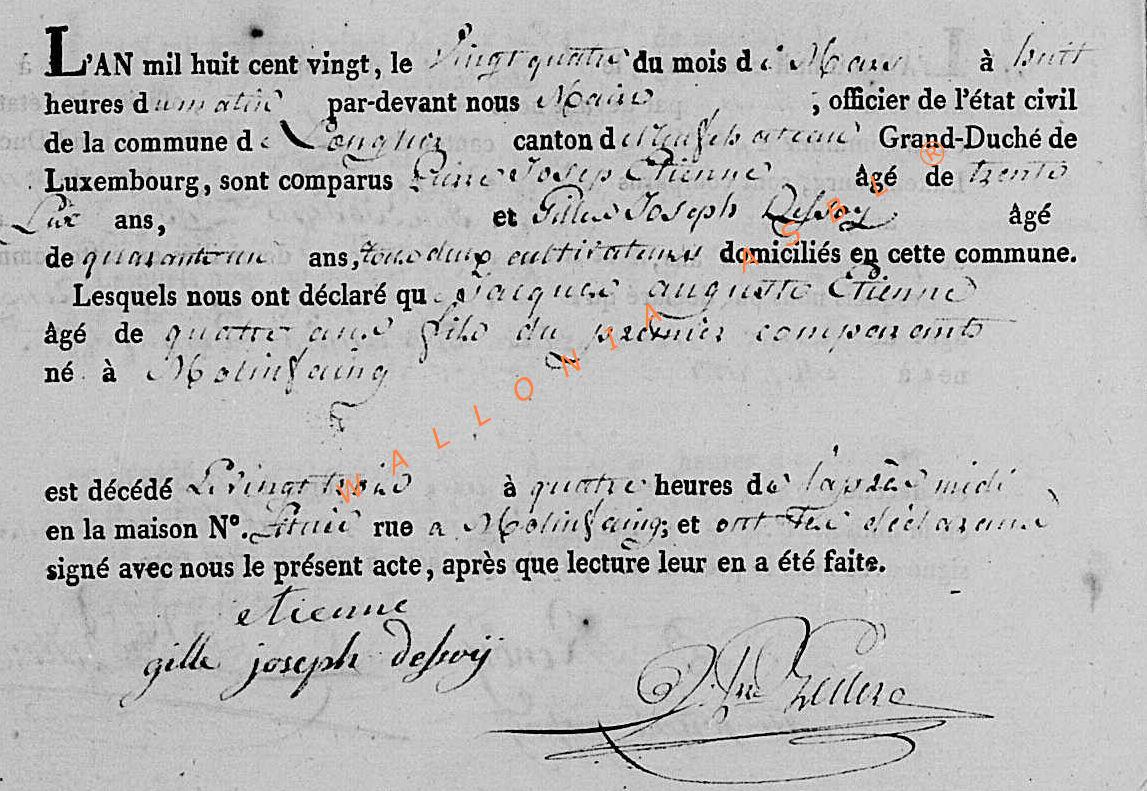 L'AN mil huit cent vingt, le Vingt quatre du mois de Mars à huit
heures du matin par-devant nous Maire , officier de l'état civil
de la commune de Longlier canton de neufchateau Grand-Duché de
Luxembourg, sont comparus Joseph Etienne âgé de trente
Six ans, et Gilles Joseph Dessoy âgé
de quarante un ans, tous deux cultivateurs domiciliés en cette commune.
Lesquels nous ont déclaré que Jacques auguste Etienne
âgé de quatre ans fils du premier comparants
né à Molinfaing
est décédé Le vingt trois à quatre heures de l'après midi
en la maison N°. Située rue a Molinfaing; et ont les déclarans
signé avec nous le présent acte, après que lecture leur en a été faite.
etienne
gille joseph dessoij
WALLONIA ASBL ®